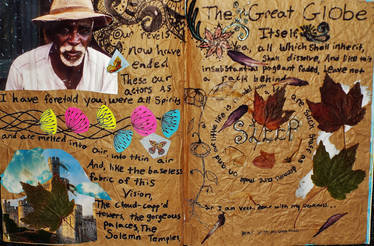 Our revels
now have
ended
These our
actors As
I have foretold you, were all Spirits
and are melted into air into thin air
And, like the baseless
fabric of this
Vision,
The Cloud-capp'd
towers, the gorgeous
palaces, The
Solemn Temples,
The Great Globe
Itself,
Yea, all Which Shall inherit,
Shall dissolve, And like this
insubstantial pageant faded, Leave not
a rack behind
we are such stuff as dreams are made on, and our little life is rounded
SLEEP
Sir I am vext, Bear with my weakness...